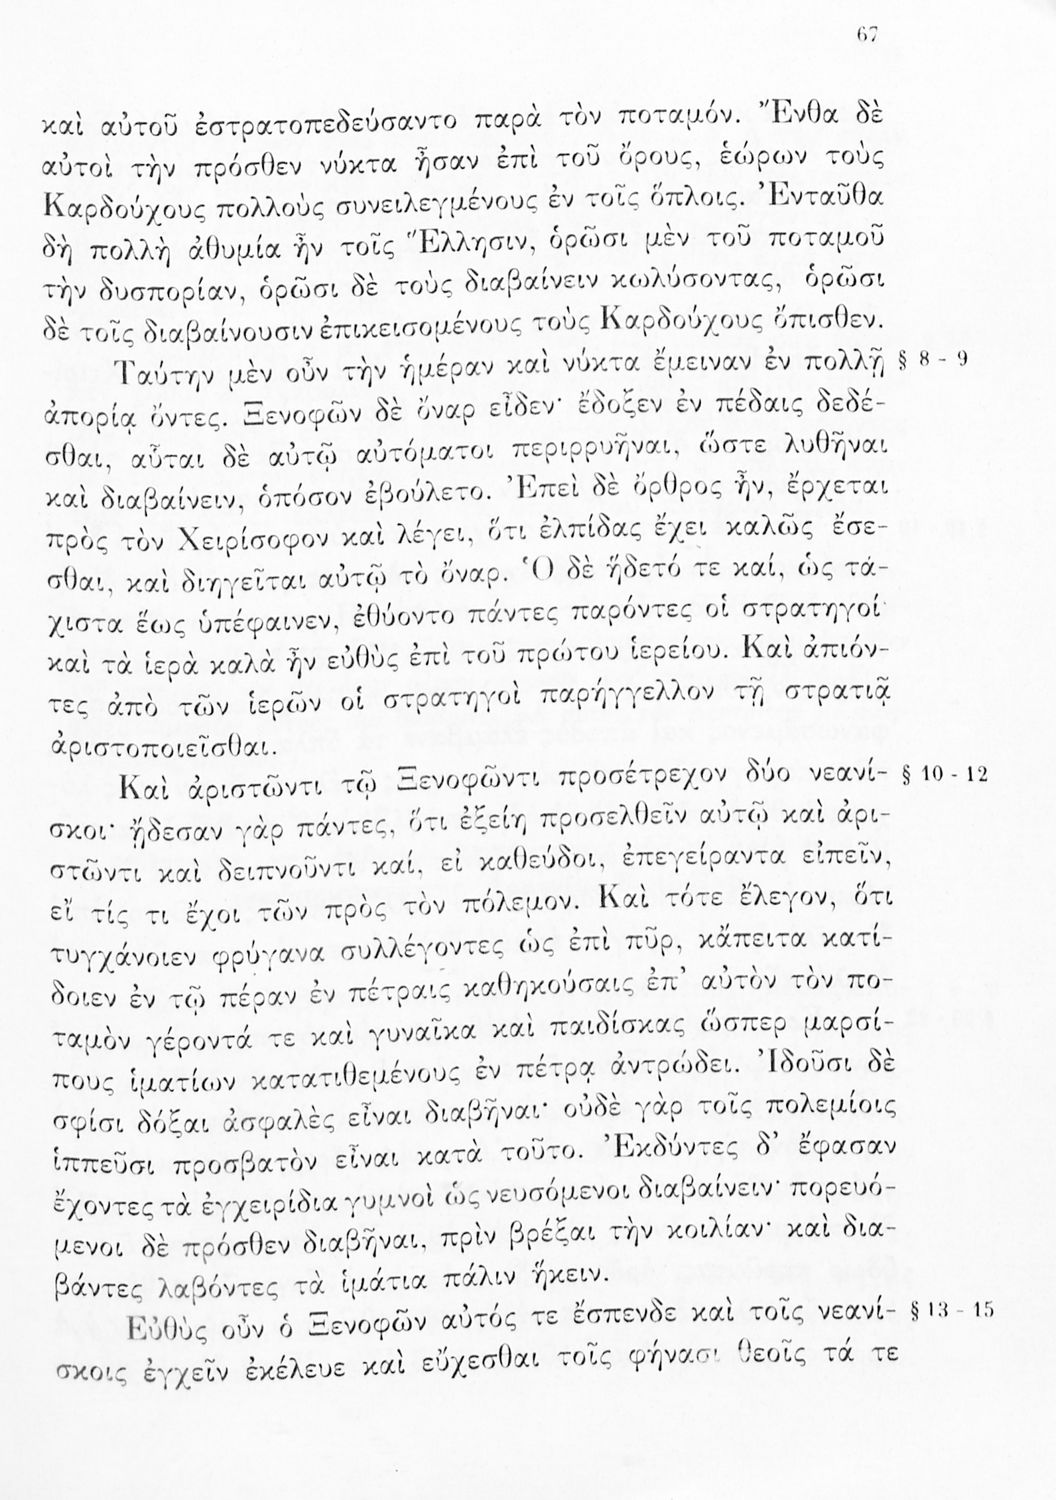 67
καὶ αὐτοῦ ἐστρατοπεδεύσαντο παρὰ τὸν ποταμόν. Ἔνθα δὲ
αὐτοὶ τὴν πρόσθεν νύκτα ἦσαν ἐπὶ τοῦ ὄρους, ἑώρων τοὺς
Καρδούχους πολλοὺς συνειλεγμένους ἐν τοῖς ὅπλοις. Ἐνταῦθα
δὴ πολλὴ ἀθυμία ἦν τοῖς Ἕλλησιν, ὁρῶσι μὲν τοῦ ποταμοῦ
τὴν δυσπορίαν, ὁρῶσι δὲ τοὺς διαβαίνειν κωλύσοντας, ὁρῶσι
δὲ τοῖς διαβαίνουσιν ἐπικεισομένους τοὺς Καρδούχους ὄπισθεν.
Ταύτην μὲν οὖν τὴν ἡμέραν καὶ νύκτα ἔμειναν ἐν πολλῇ § 8 - 9
ἀπορίᾳ ὄντες. Ξενοφῶν δὲ ὄναρ εἶδεν· ἔδοξεν ἐν πέδαις δεδέ-
σθαι, αὗται δὲ αὐτῷ αὐτόματοι περιρρυῆναι, ὥστε λυθῆναι
καὶ διαβαίνειν, ὁπόσον ἐβούλετο. Ἐπεὶ δὲ ὄρθρος ἦν, ἔρχεται
πρὸς τὸν Χειρίσοφον καὶ λέγει, ὅτι ἐλπίδας ἔχει καλῶς ἔσε-
σθαι, καὶ διηγεῖται αὐτῷ τὸ ὄναρ. Ὁ δὲ ἥδετό τε καί, ὡς τά-
χιστα ἕως ὑπέφαινεν, ἐθύοντο πάντες παρόντες οἱ στρατηγοί·
καὶ τὰ ἱερὰ καλὰ ἦν εὐθὺς ἐπὶ τοῦ πρώτου ἱερείου. Καὶ ἀπιόν-
τες ἀπὸ τῶν ἱερῶν οἱ στρατηγοὶ παρήγγελλον τῇ στρατιᾷ
ἀριστοποιεῖσθαι.
Καὶ ἀριστῶντι τῷ Ξενοφῶντι προσέτρεχον δύο νεανί- § 10 - 12
σκοι· ᾔδεσαν γὰρ πάντες, ὅτι ἐξείη προσελθεῖν αὐτῷ καὶ ἀρι-
στῶντι καὶ δειπνοῦντι καί, εἰ καθεύδοι, ἐπεγείραντα εἰπεῖν,
εἴ τίς τι ἔχοι τῶν πρὸς τὸν πόλεμον. Καὶ τότε ἔλεγον, ὅτι
τυγχάνοιεν φρύγανα συλλέγοντες ὡς ἐπὶ πῦρ, κἄπειτα κατί-
δοιεν ἐν τῷ πέραν ἐν πέτραις καθηκούσαις ἐπ’ αὐτὸν τὸν πο-
ταμὸν γέροντά τε καὶ γυναῖκα καὶ παιδίσκας ὥσπερ μαρσί-
πους ἱματίων κατατιθεμένους ἐν πέτρᾳ ἀντρώδει. Ἰδοῦσι δὲ
σφίσι δόξαι ἀσφαλὲς εἶναι διαβῆναι· οὐδὲ γὰρ τοῖς πολεμίοις
ἱππεῦσι προσβατὸν εἶναι κατὰ τοῦτο. Ἐκδύντες δ’ ἔφασαν
ἔχοντες τὰ ἐγχειρίδια γυμνοὶ ὡς νευσόμενοι διαβαίνειν· πορευό-
μενοι δὲ πρόσθεν διαβῆναι, πρὶν βρέξαι τὴν κοιλίαν· καὶ δια-
βάντες λαβόντες τὰ ἱμάτια πάλιν ἥκειν.
Εὐθὺς οὖν ὁ Ξενοφῶν αὐτός τε ἔσπενδε καὶ τοῖς νεανί- § 13 - 15
σκοις ἐγχεῖν ἐκέλευε καὶ εὔχεσθαι τοῖς φήνασι θεοῖς τά τε